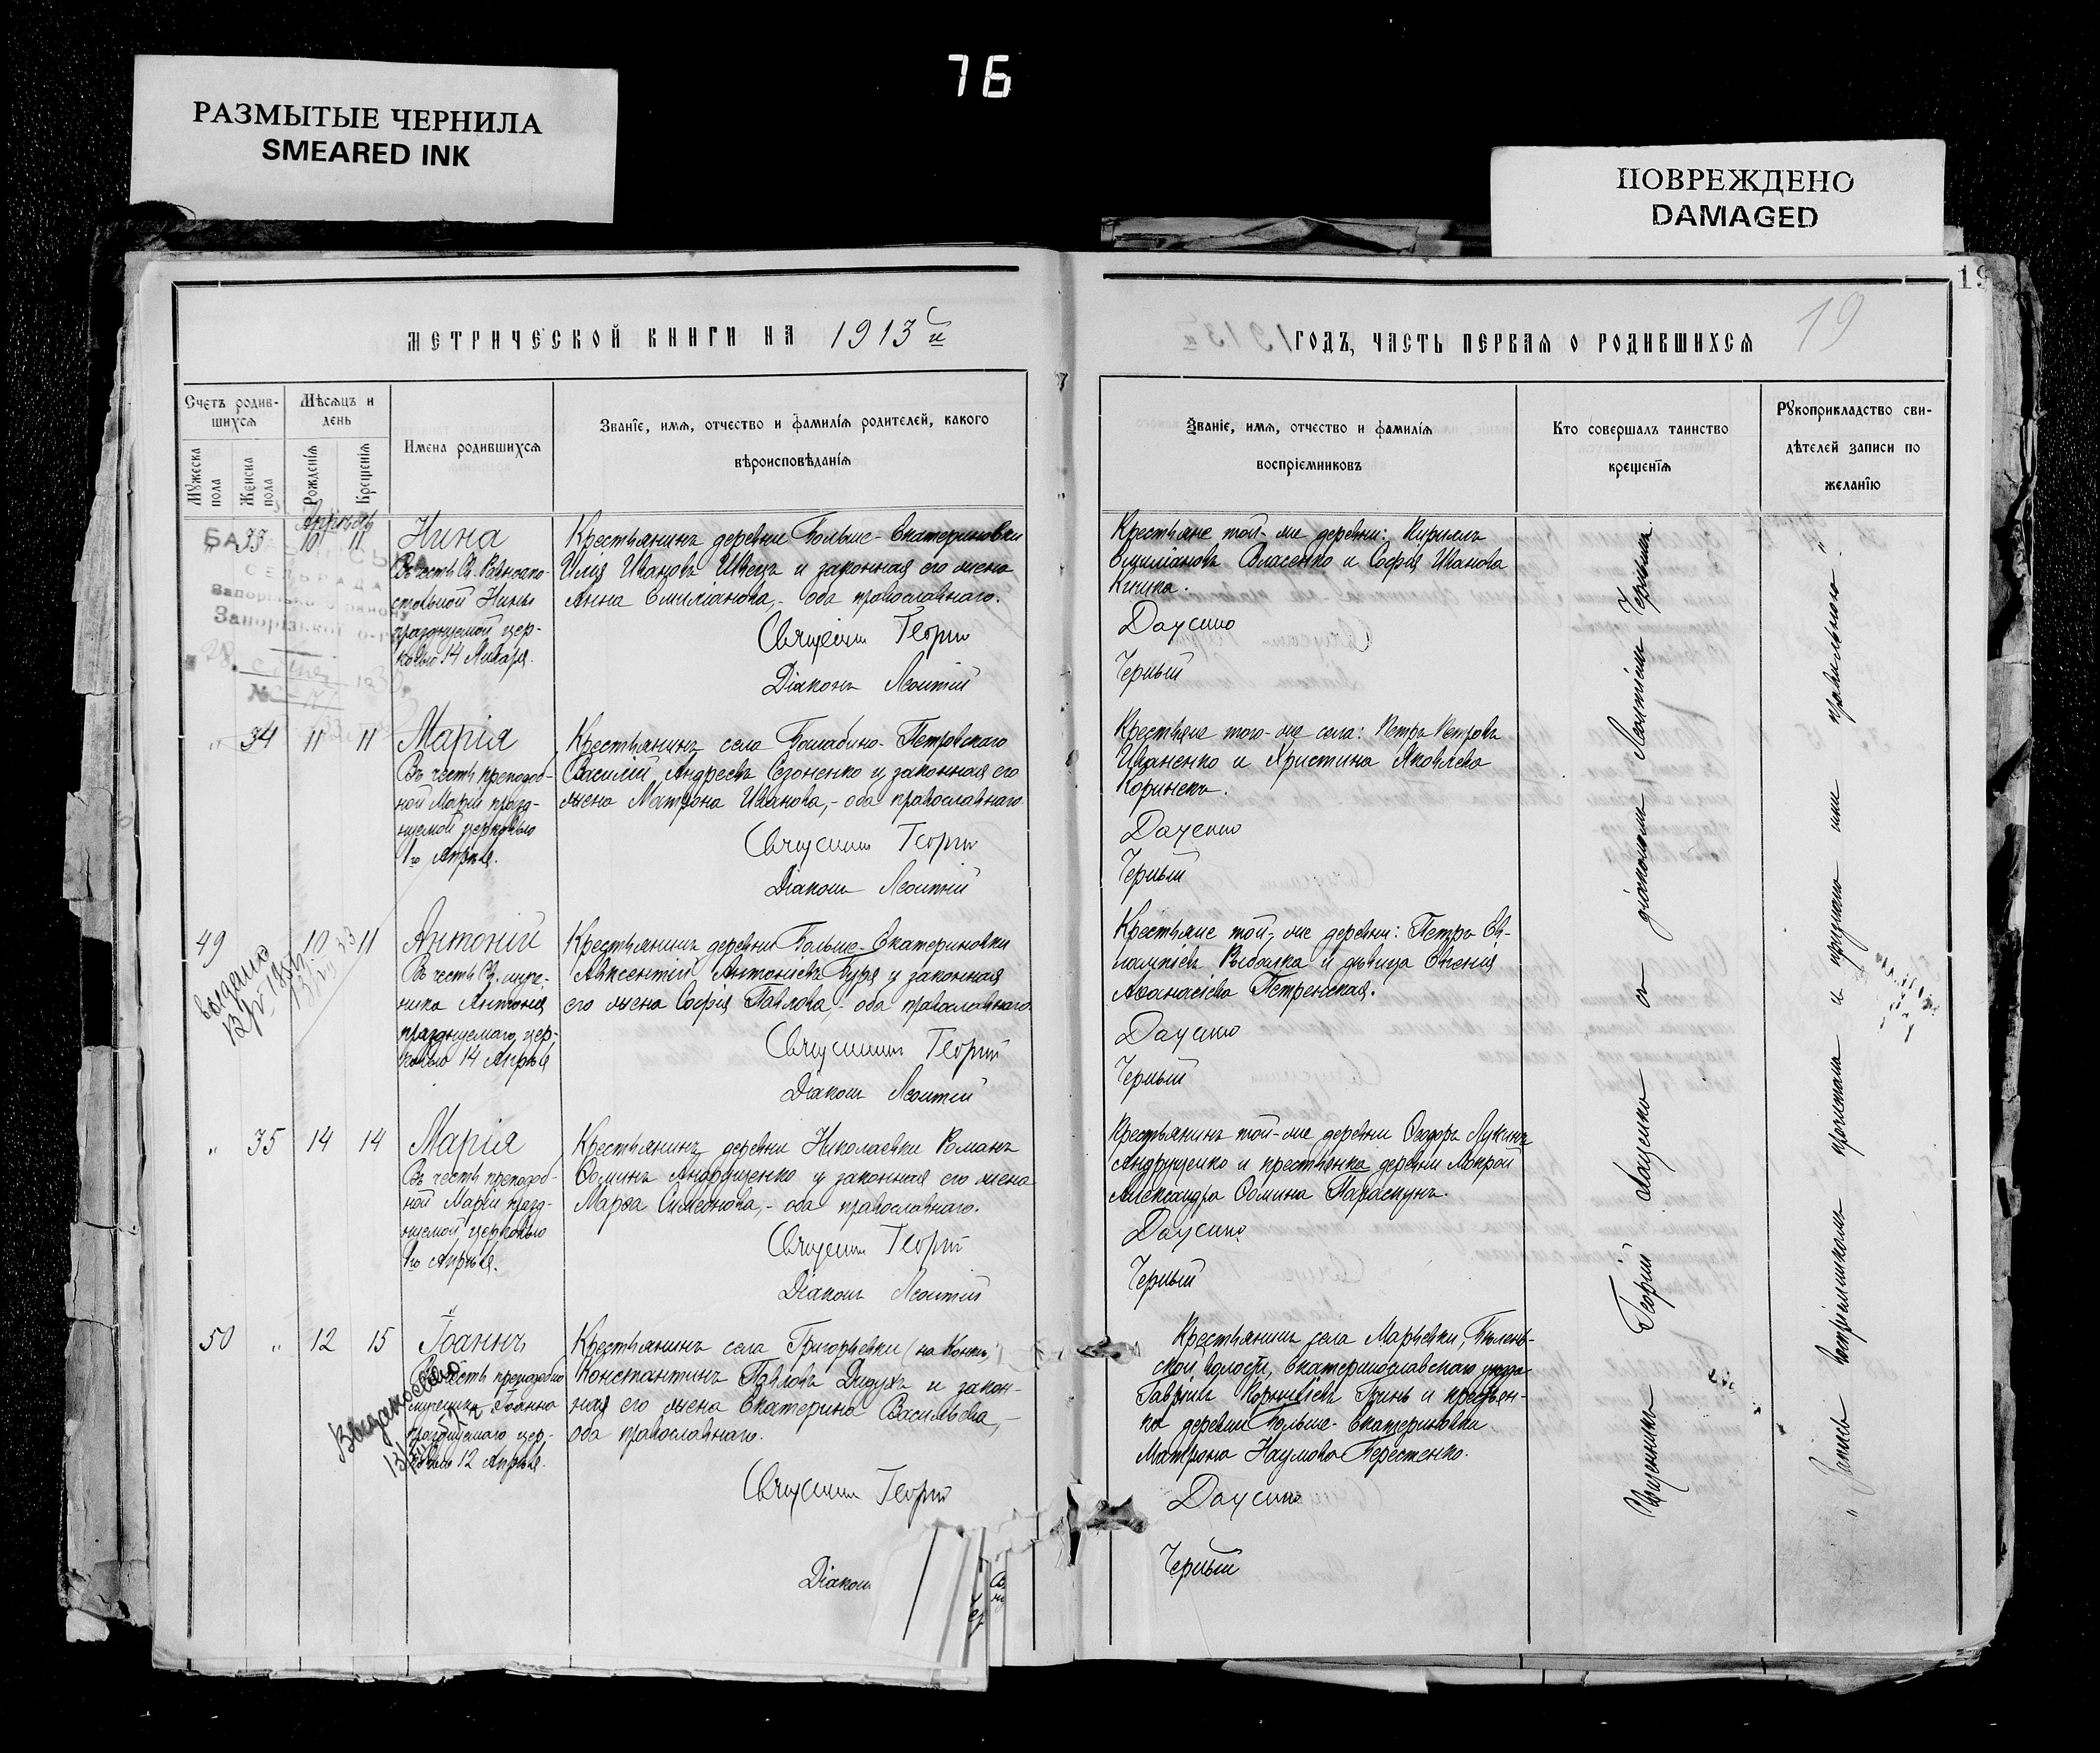 76
РАЗМЫТЫЕ ЧЕРНИЛА
SMEARED INK
ПОВРЕЖДЕНО
DAMAGED
19
19
МЕТРИЧЕСКОЙ КНИГИ НА 1913й
Счетъ родив-
шихся
Мѣсяцъ и
день
Мужеска
пола
Женска
пола
Рожденія
Крещенія
Имена родившихся
Званіе, имя, отчество и фамилія родителей, какого
вѣроисповѣданія
Апрѣль
33 10 11
Нина
Въ честь Св. Равноапо-
стольной Нины
празднуемой цер-
ковью 14 Января.
Крестьянинъ деревни Больше-Екатериновки
Илія Ивановъ Швецъ и законная его жена
Анна Емиліанова,- оба православнаго.
Священникъ Георгій
Діаконъ Леонтій
" 34 11 11
Марія
Въ честь преподоб-
ной Маріи празд-
нуемой церковью
1го Апрѣля.
Крестьянинъ села Балабино-Петровскаго
Василій Андреевъ Созоненко и законная его
жена Матрона Иванова,- оба православнаго
Священникъ Георгій
Діаконъ Леонтій
49 10 11
выдано
Антоній
Въ честь Св. муче-
ника Антонія
празднуемаго цер-
ковью 14 Апрѣля
Крестьянинъ деревни Больше-Екатериновки
Авксентій Антоніевъ Буря и законная
его жена Софія Павлова,- оба православнаго
Священникъ Георгій
Діаконъ Леонтій
" 35 14 14
Марія
Въ честь преподоб-
ной Маріи празд-
нуемой церковью
1го Апрѣля.
Крестьянинъ деревни Николаевки Романъ
Ѳоминъ Андрущенко и законная его жена
Марѳа Симеонова,- оба православнаго.
Священникъ Георгій
Діаконъ Леонтій
50 " 12 15
Іоаннъ
Въ честь преподобно
мученика Іоанна
празднуемаго цер-
ковью 12 Апрѣля.
Крестьянинъ села Григорьевки (на Конкѣ)
Константинъ Павловъ Дидухъ и закон-
ная его жена Екатерина Васильева,-
оба православнаго.
Священникъ Георгій
Діаконъ
ГОДЪ, ЧАСТЬ ПЕРВАЯ О РОДИВШИХСЯ
Званіе, имя, отчество и фамилія
воспріемниковъ
Кто совершалъ таинство
крещенія
Рукоприкладство сви-
дѣтелей записи по
желанію
Крестьяне той-же деревни: Кириллъ
Емиліановъ Власенко и Софія Иванова
Книжа.
Даценко
Черный
Крестьяне того-же села: Петръ Петровъ
Иваненко и Христина Яковлева
Коринекъ.
Даценко
Черный
Крестьяне той-же деревни: Петръ Ев-
лампіевъ Рыбалка и дѣвица Евгенія
Аѳанасіева Петренская.
Даценко
Черный
Крестьянинъ той-же деревни Ѳеодоръ Лукинъ
Андрущенко и крестьянка деревни Мокрой
Александра Ѳомина Параскунъ.
Даценко
Черный
Крестьянинъ села Марьевки, Бѣлень-
ской волости, Екатеринославскаго уѣзда
Гавріилъ Корниліевъ Гринь и крестьян-
ка деревни Больше-Екатериновки
Матрона Наумова Берестенко.
Даценко
Черный
Священникъ Георгій Даценко съ діакономъ Леонтіемъ Чернымъ.
"Запись воспріемникамъ прочитана и признана ими правильною".